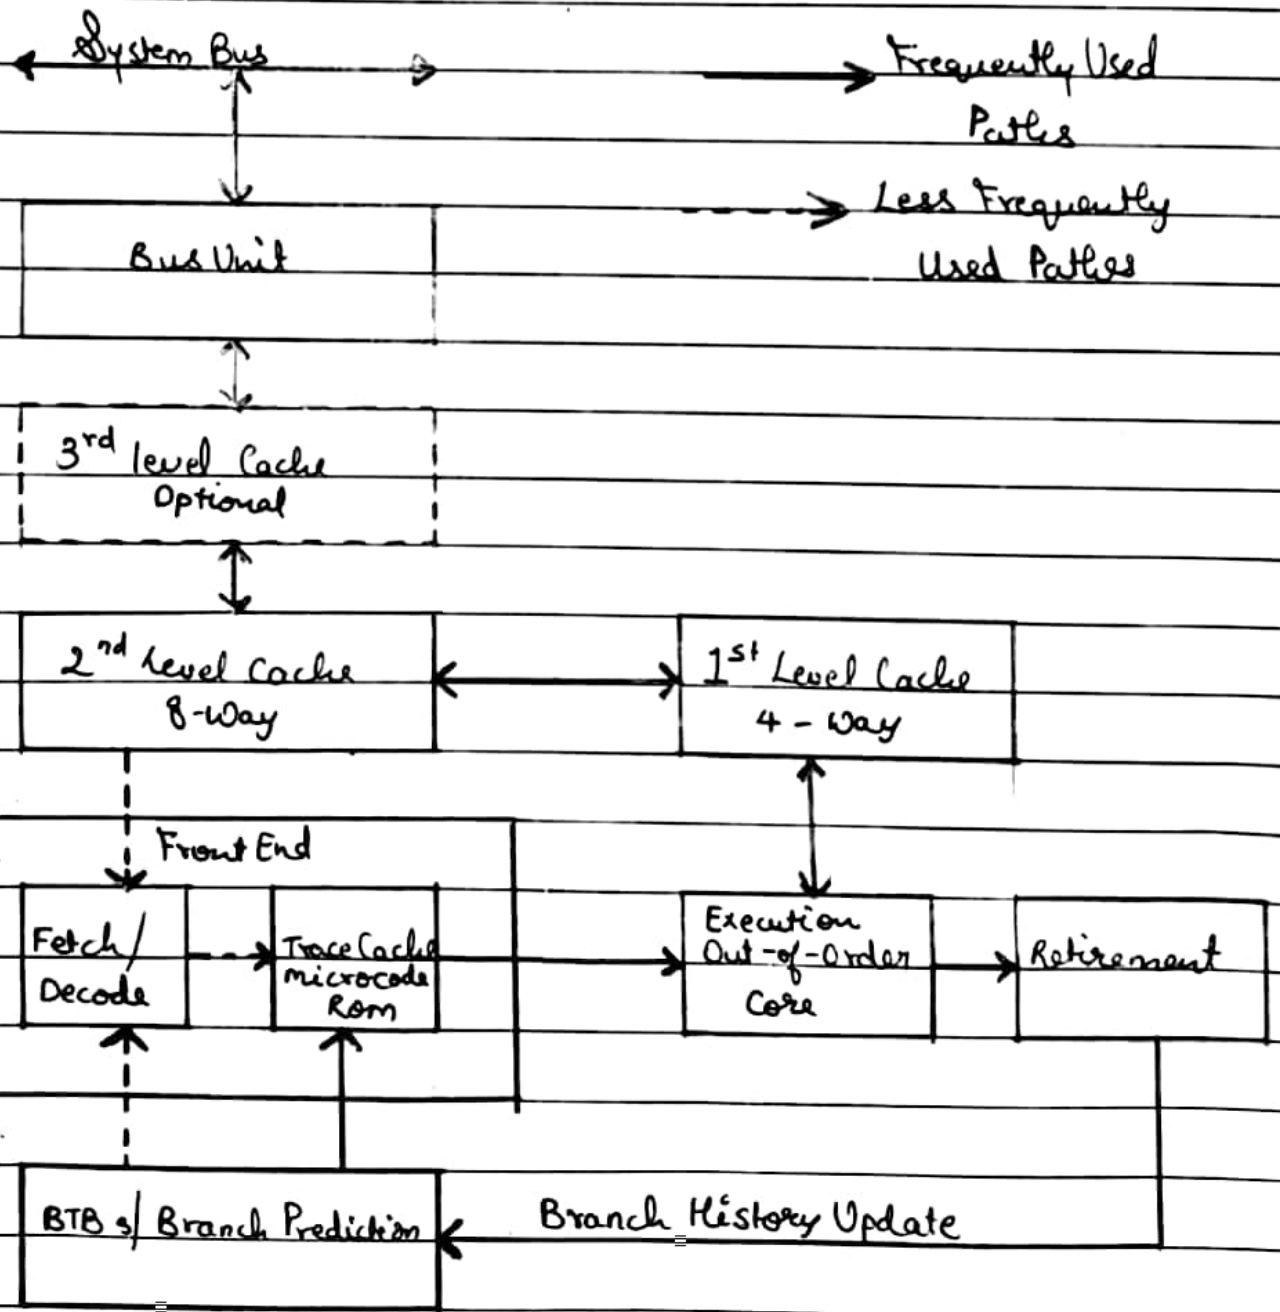 System Bus
Frequently Used
Paths
Less Frequently
Used Paths
Bus Unit
3rd level Cache
Optional
2nd Level Cache
8-Way
1st Level Cache
4 - Way
Front End
Fetch/
Decode
Trace Cache
microcode
Rom
Execution
Out-of-Order
Core
Retirement
BTB s/ Branch Prediction
Branch History Update